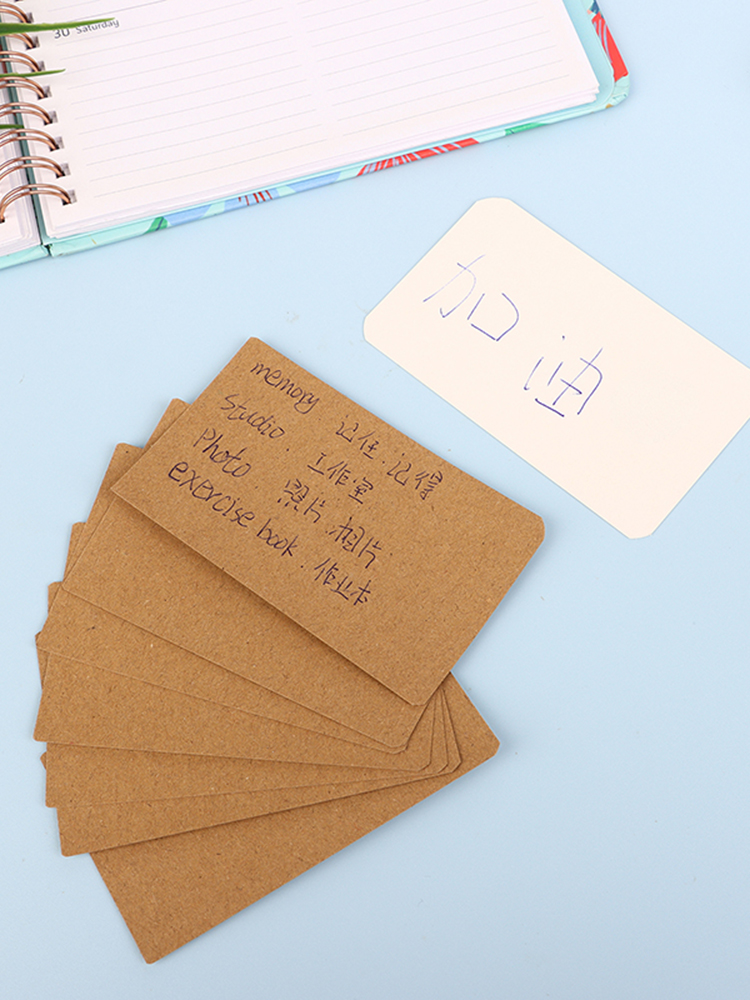 30 Saturday
加油
memory 记住.记得.
studio. 工作室
photo. 照片.相片.
exercise book. 作业本